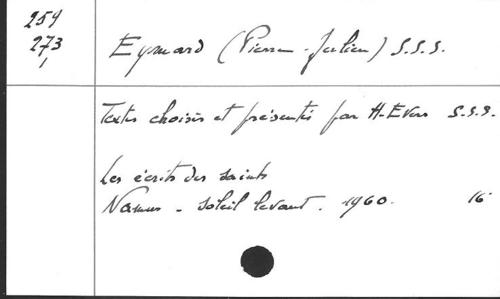 259
273
Eymard (Pierre-Julien) S.S.S.
Textes choisis et présentés par H. Evers S.S.S.
Les écrits des saints
Namur - Soleil levant. 1960. 16